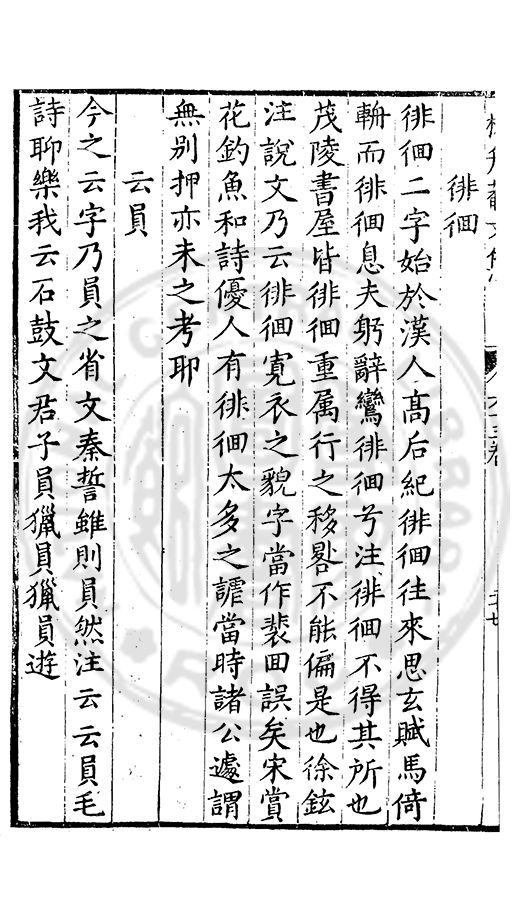 徘徊
徘徊二字始於漢人高后紀徘徊往來思玄賦馬倚
輈而徘徊息夫躬辭鸞徘徊兮注徘徊不得其所也
茂陵書屋皆徘徊重属行之移晷不能偏是也徐鉉
注說文乃云徘徊寛衣之貌字當作裴回誤矣宋賞
花釣魚和詩優人有徘徊太多之謔當時諸公遽謂
無别押亦未之考耶
云員
今之云字乃員之省文秦誓雖則員然注云云員毛
詩聊樂我云石鼓文君子員獵員獵員遊